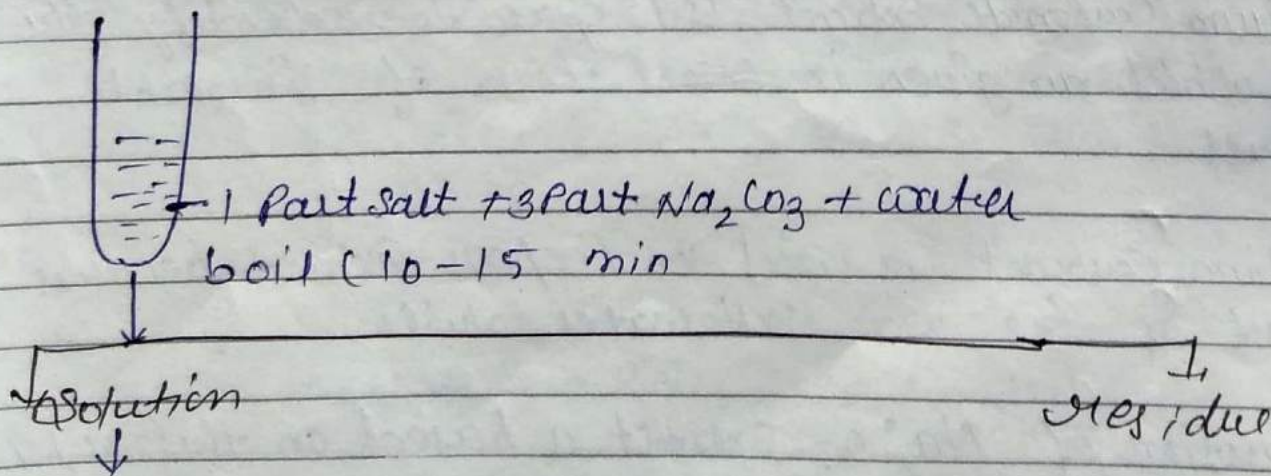 1 Part salt + 3 Part Na₂CO₃ + water
boil (10-15 min
solution
residue